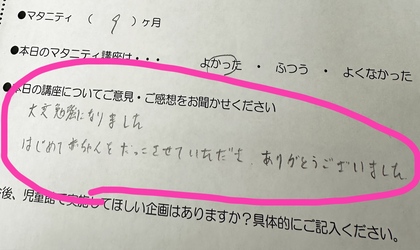 ●マタニティ (9)ヶ月
●本日のマタニティ講座は・・・ よかった ・ ふつう ・ よくなかった
本日の講座についてご意見・ご感想をお聞かせください
大変勉強になりました
はじめて赤ちゃんをだっこさせていただき、ありがとうございました
後、児童館で実施してほしい企画はありますか?具体的にご記入ください。